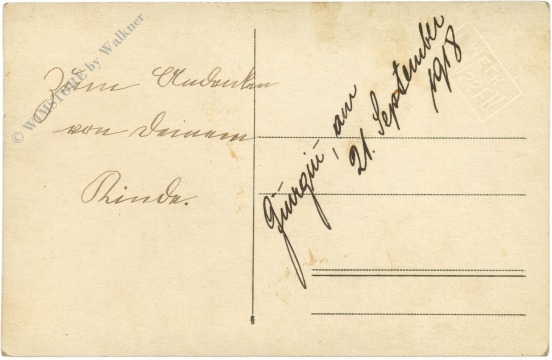 Zum Andenken
von Deinem
Kinde.
Giurgiu, am
21. September
1918
© WOLSTORE by Walkner
WIEN